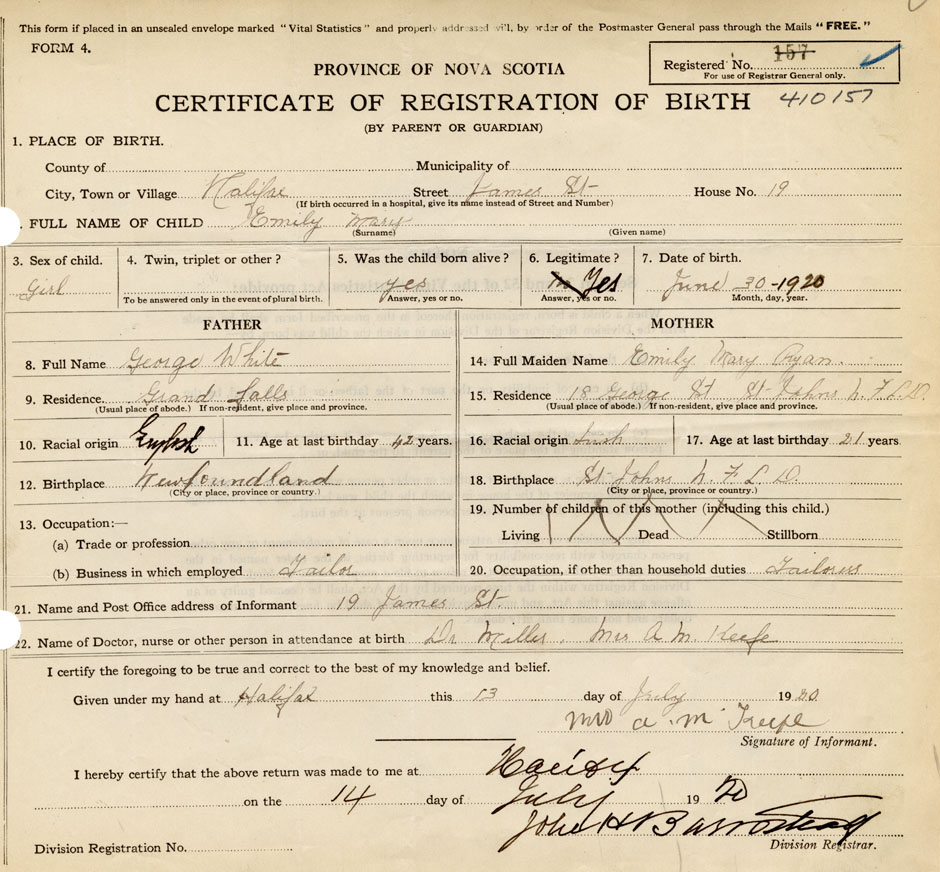 This form if placed in an unsealed envelope marked "Vital Statistics" and properly addressed will, by order of the Postmaster General pass through the Mails "FREE."
FORM 4.
Registered No. 157
For use of Registrar General only.
PROVINCE OF NOVA SCOTIA
CERTIFICATE OF REGISTRATION OF BIRTH 410157
(BY PARENT OR GUARDIAN)
1. PLACE OF BIRTH.
County of Municipality of
City, Town or Village Halifax Street James St House No. 19
(If birth occurred in a hospital, give its name instead of Street and Number)
. FULL NAME OF CHILD Emily Mary
(Surname) (Given name)
3. Sex of child. 4. Twin, triplet or other? 5. Was the child born alive? 6. Legitimate? 7. Date of birth.
Girl yes Yes June 30-1920
To be answered only in the event of plural birth. Answer, yes or no. Answer, yes or no. Month, day, year.
FATHER
8. Full Name George White
9. Residence. Grand Falls
(Usual place of abode.) If non-resident, give place and province.
10. Racial origin English 11. Age at last birthday 42 years.
12. Birthplace Newfoundland
(City or place, province or country.)
13. Occupation:—
(a) Trade or profession
(b) Business in which employed Tailor
MOTHER
14. Full Maiden Name Emily Mary Ryan.
15. Residence 18 George St St Johns N.F.L.D.
(Usual place of abode.) If non-resident, give place and province.
16. Racial origin Irish 17. Age at last birthday 21 years
18. Birthplace St Johns N.F.L.D.
(City or place, province or country.)
19. Number of children of this mother (including this child.)
Living Dead Stillborn
20. Occupation, if other than household duties Tailoress
21. Name and Post Office address of Informant 19 James St.
22. Name of Doctor, nurse or other person in attendance at birth Dr Miller. Mrs A. M. Keefe
I certify the foregoing to be true and correct to the best of my knowledge and belief.
Given under my hand at Halifax this 13 day of July 1920
Mrs A. M Keefe
Signature of Informant.
I hereby certify that the above return was made to me at Halifax
on the 14 day of July 1920
John H Barnstead
Division Registrar.
Division Registration No.